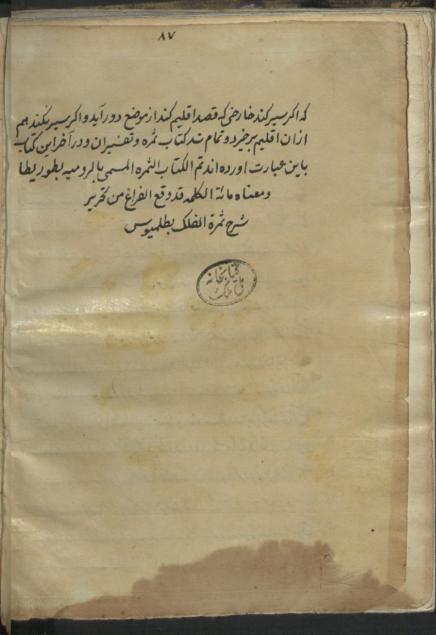 ٨٧
که اکر سیر کند خارجی که قصد اقلیم کند از موضع دور آید و اکر سیر نکند هم
از ان اقلیم برخیزد و تمام شد کتاب ثمره و تفسیر ان و در آخر این کتاب
باین عبارت اورده اند تم الکتاب الثمره المسمی بالرومیه
و معناه مائة الکلمه قد وقع الفراغ من تحریر
شرح ثمرة الفلک بطلمیوس
کتابخانه
ملی ملک